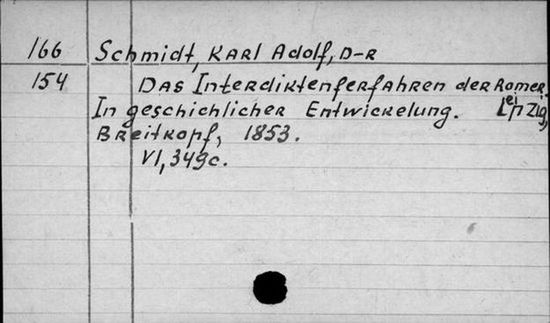 166 Schmidt, Karl Adolf, D-r
154 Das Interdiktenferfahren der Romer
In geschichlicher Entwickelung. Leipzig,
Breitkopf, 1853.
VI, 349c.